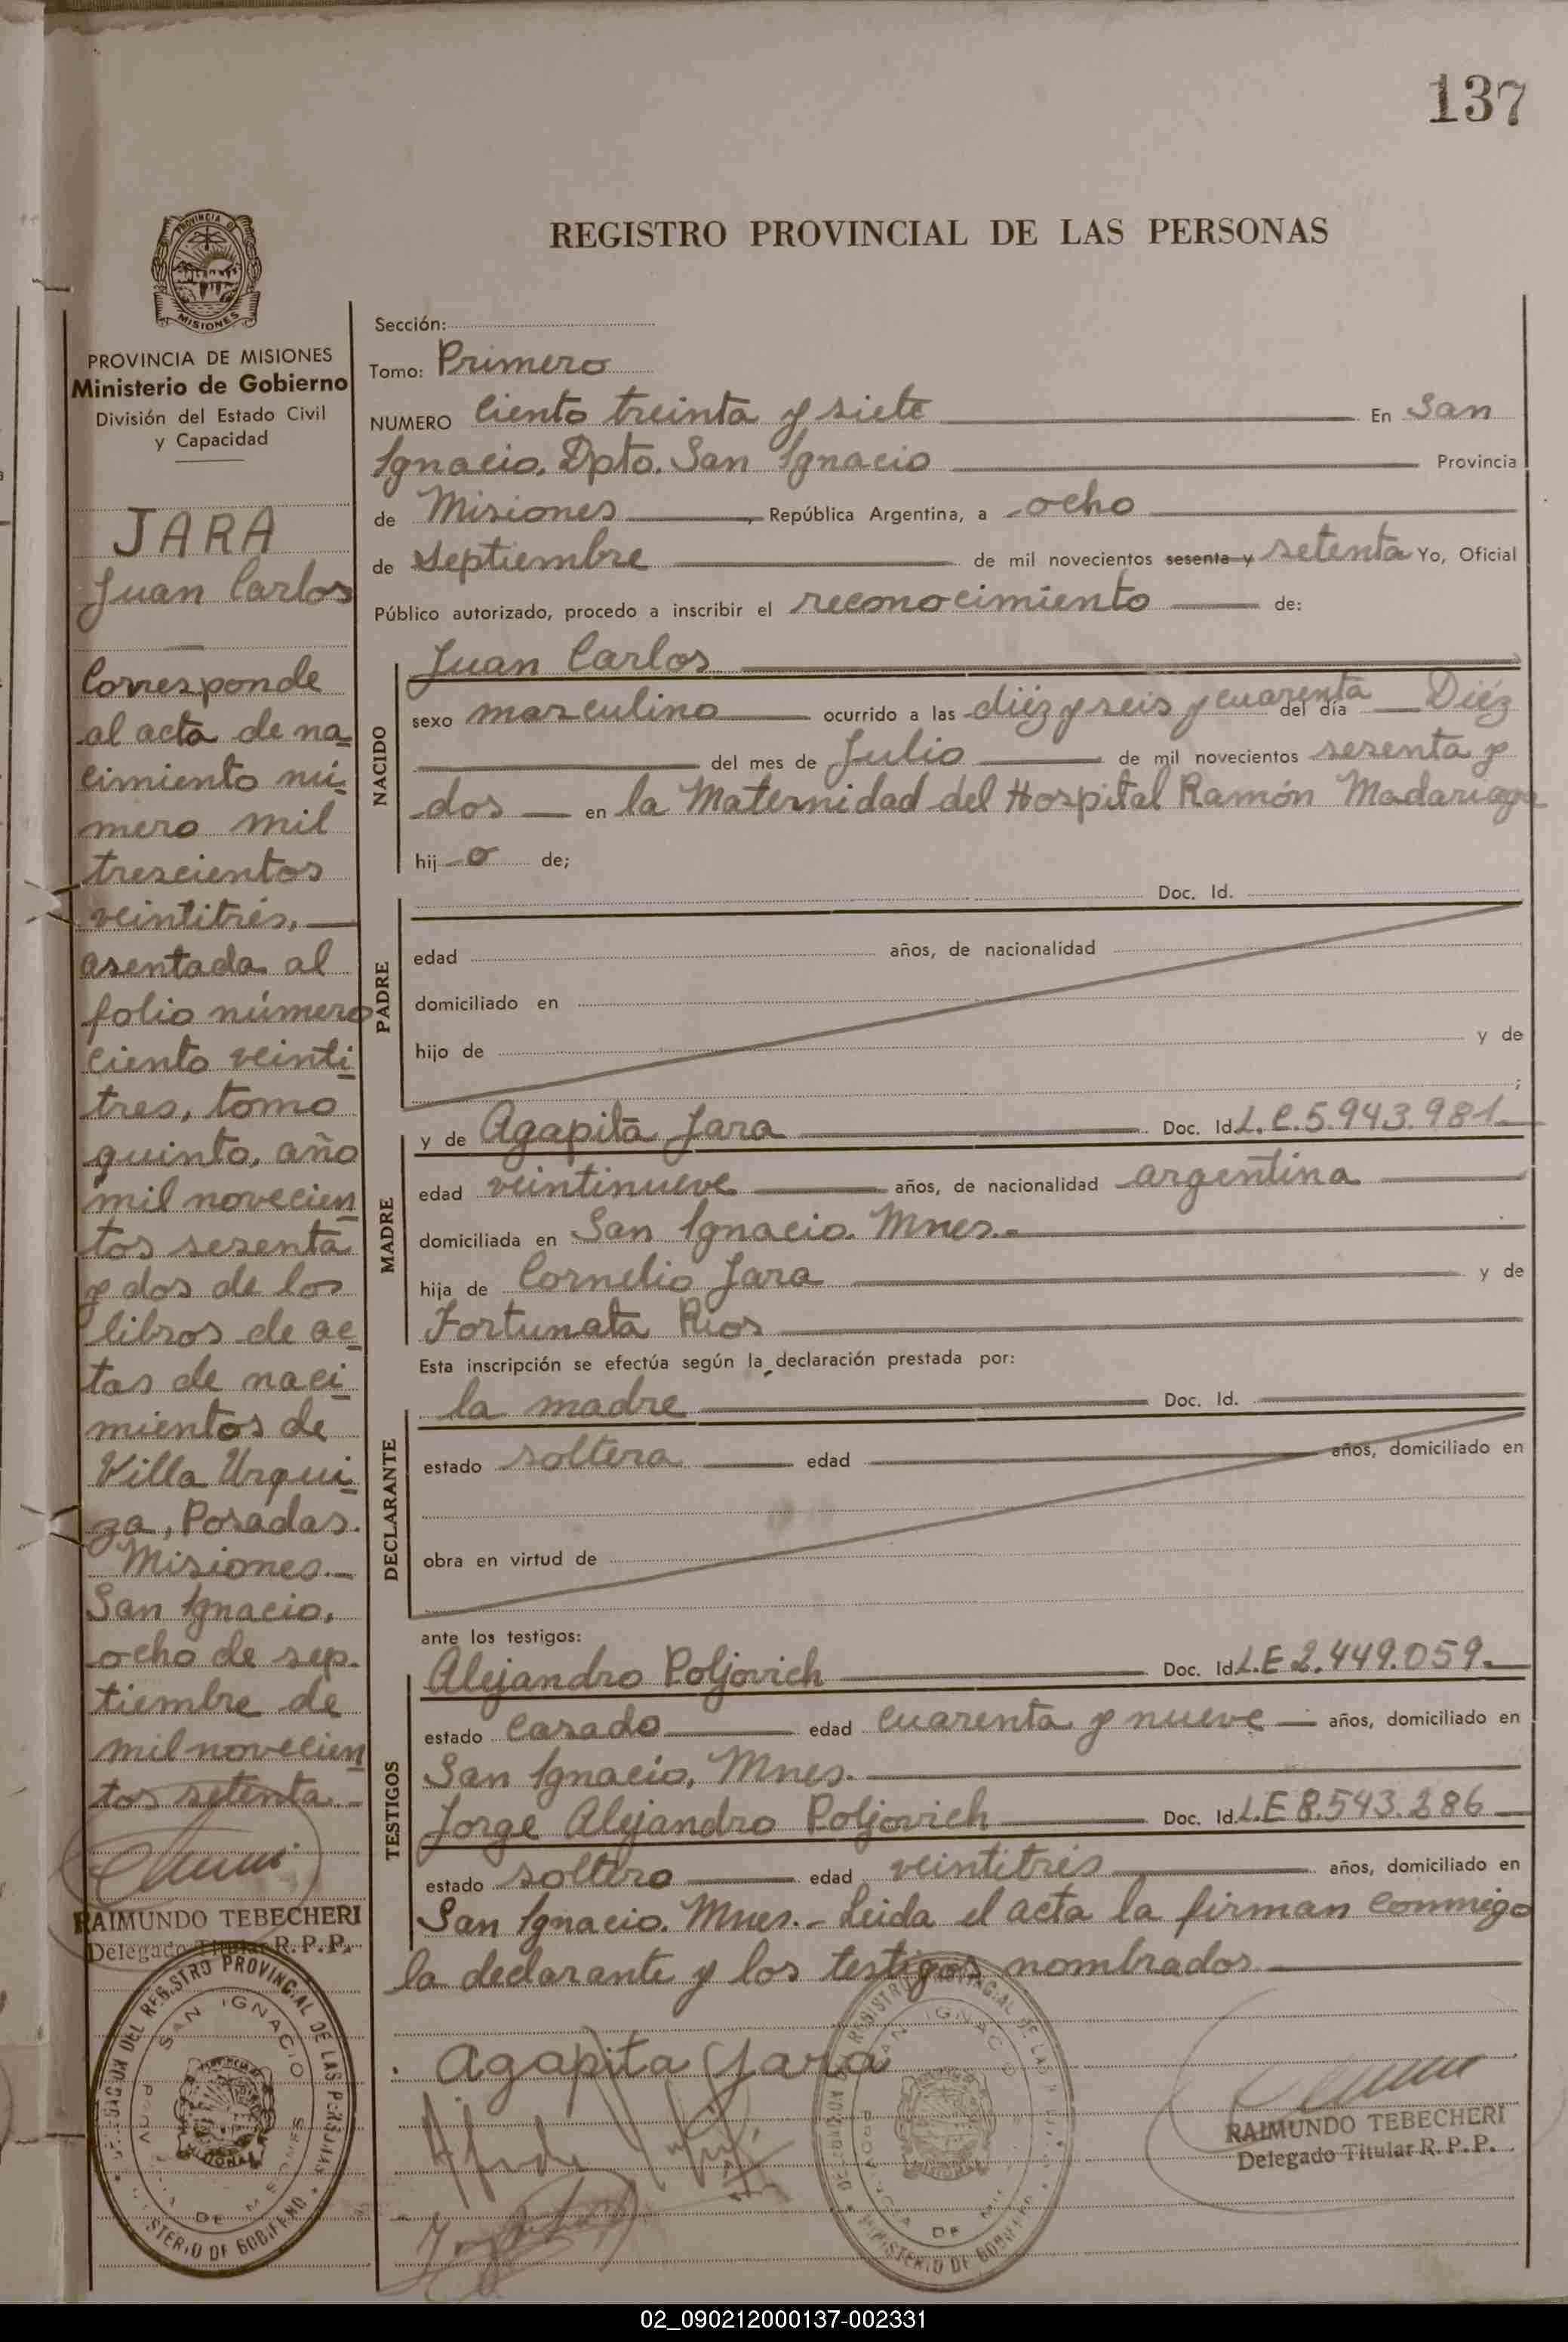 137
REGISTRO PROVINCIAL DE LAS PERSONAS
PROVINCIA
MISIONES
PROVINCIA DE MISIONES
Ministerio de Gobierno
División del Estado Civil
y Capacidad
JARA
Juan Carlos
Corresponde
al acta de na
cimiento nú
mero mil
trescientos
veintitrés,
asentada al
folio número
ciento veinti
tres, tomo
quinto, año
mil novecien
tos sesenta
y dos de los
libros de ac
tas de naci
mientos de
Villa Urqui
za, Posadas.
Misiones.-
San Ignacio,
ocho de sep.
tiembre de
mil novecien
tos setenta.-
RAIMUNDO TEBECHERI
Delegado Titular R.P.P.
Sección:
Tomo: Primero
NUMERO Ciento treinta y siete En San
Ignacio. Dpto. San Ignacio Provincia
de Misiones, República Argentina, a ocho
de septiembre de mil novecientos sesenta y setenta Yo, Oficial
Público autorizado, procedo a inscribir el reconocimiento de:
NACIDO
Juan Carlos
sexo masculino ocurrido a las diéz y seis y cuarenta del día Diéz
del mes de Julio de mil novecientos sesenta y
dos en la Maternidad del Hospital Ramón Madariaga
hij o de;
PADRE
Doc. Id.
edad años, de nacionalidad
domiciliado en
hijo de y de
;
MADRE
y de Agapita Jara Doc. Id. L.C. 5.943.981
edad veintinueve años, de nacionalidad argentina
domiciliada en San Ignacio. Mnes.-
hija de Cornelio Jara y de
Fortunata Rios
Esta inscripción se efectúa según la declaración prestada por:
DECLARANTE
la madre Doc. Id.
estado soltera edad años, domiciliado en
obra en virtud de
ante los testigos:
TESTIGOS
Alejandro Poljovich Doc. Id. L.E 2.449.059.
estado casado edad cuarenta y nueve años, domiciliado en
San Ignacio, Mnes.
Jorge Alejandro Poljovich Doc. Id. L.E 8.543.286
estado soltero edad veintitrés años, domiciliado en
San Ignacio. Mnes.- Leida el acta la firman conmigo
la declarante y los testigos nombrados
Agapita Jara
RAIMUNDO TEBECHERI
Delegado Titular R.P.P.
02_090212000137-002331